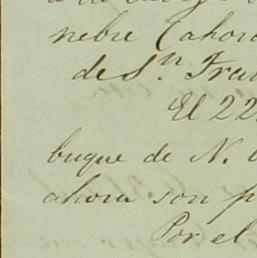 nebre (ahora
de Sn. Fran
El 22
buque de N.
ahora son p
Por el